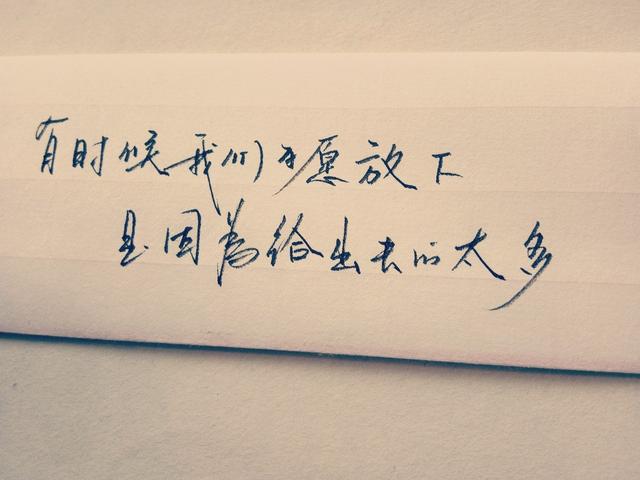 有时候我们不愿放下
是因為给出去的太多